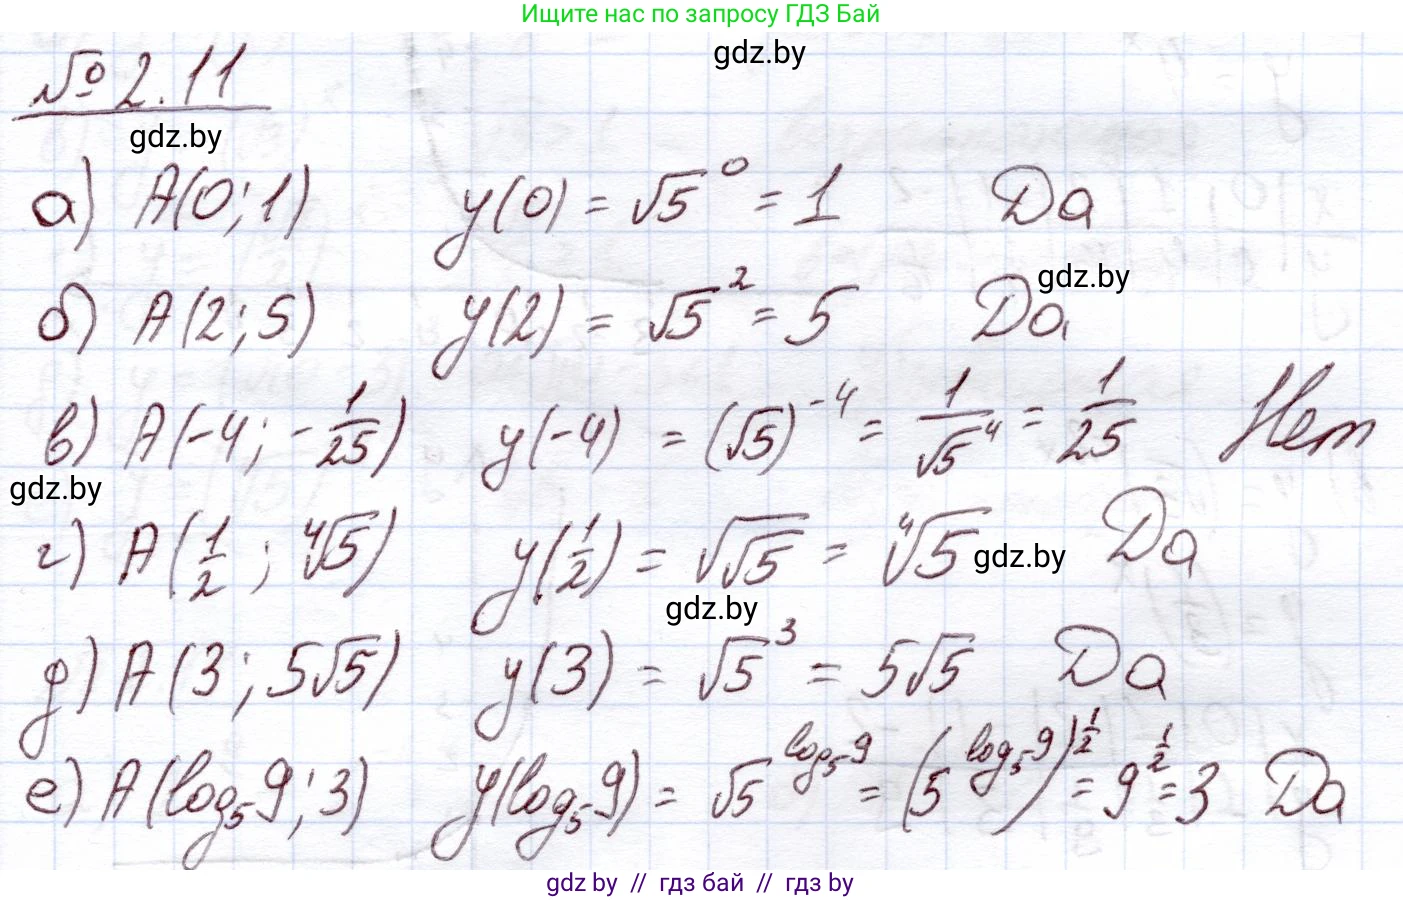 Ищите нас по запросу ГДЗ Бай
gdz.by
№ 2.11
gdz.by
а) A(0; 1) y(0) = √5^0 = 1 Да
gdz.by
б) A(2; 5) y(2) = √5^2 = 5 Да
в) A(-4; -1/25) y(-4) = (√5)^-4 = 1/√5^4 = 1/25 Нет
gdz.by
г) A(1/2; ∜5) y(1/2) = √√5 = ∜5 Да
gdz.by
gdz.by
д) A(3; 5√5) y(3) = √5^3 = 5√5 Да
е) A(log₅9; 3) y(log₅9) = √5^log₅9 = (5^log₅9)^1/2 = 9^1/2 = 3 Да
gdz by // гдз бай // гдз by